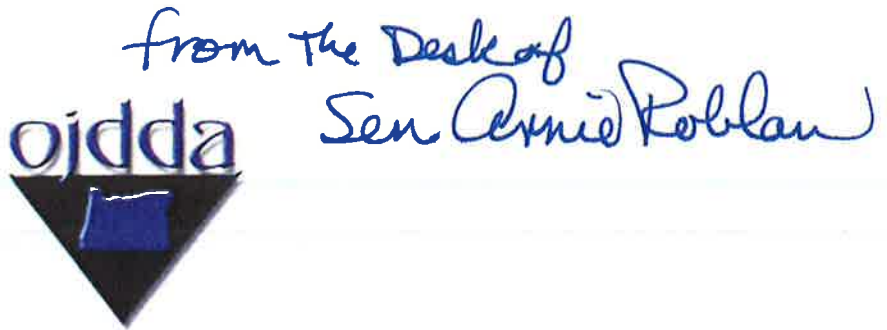 from The Desk of
Sen Arnie Roblan
ojdda